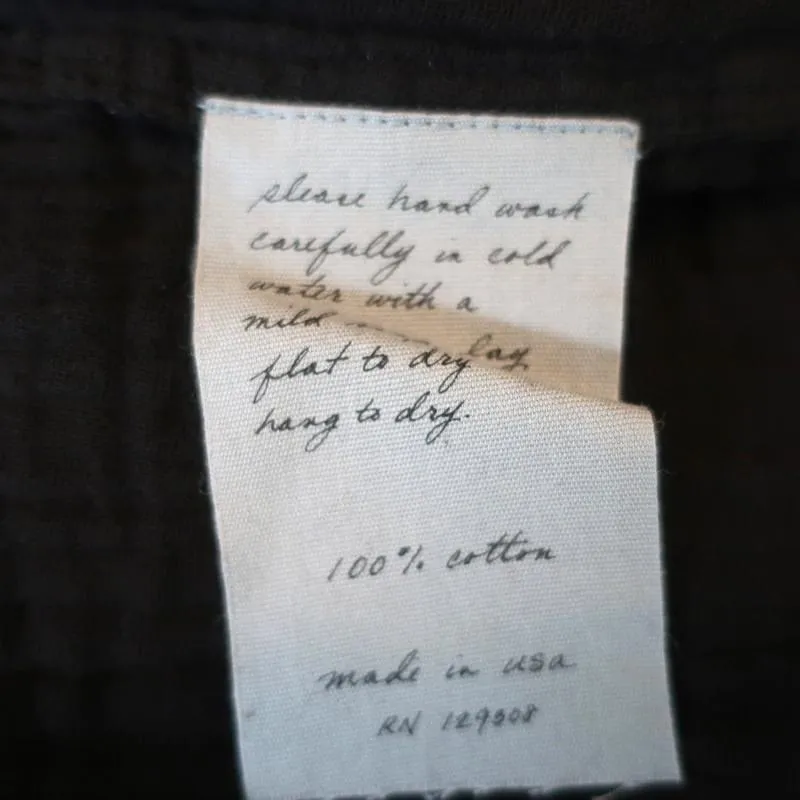 please hand wash
carefully in cold
water with a
mild lay
flat to dry
hang to dry.
100% cotton
made in usa
RN 129308